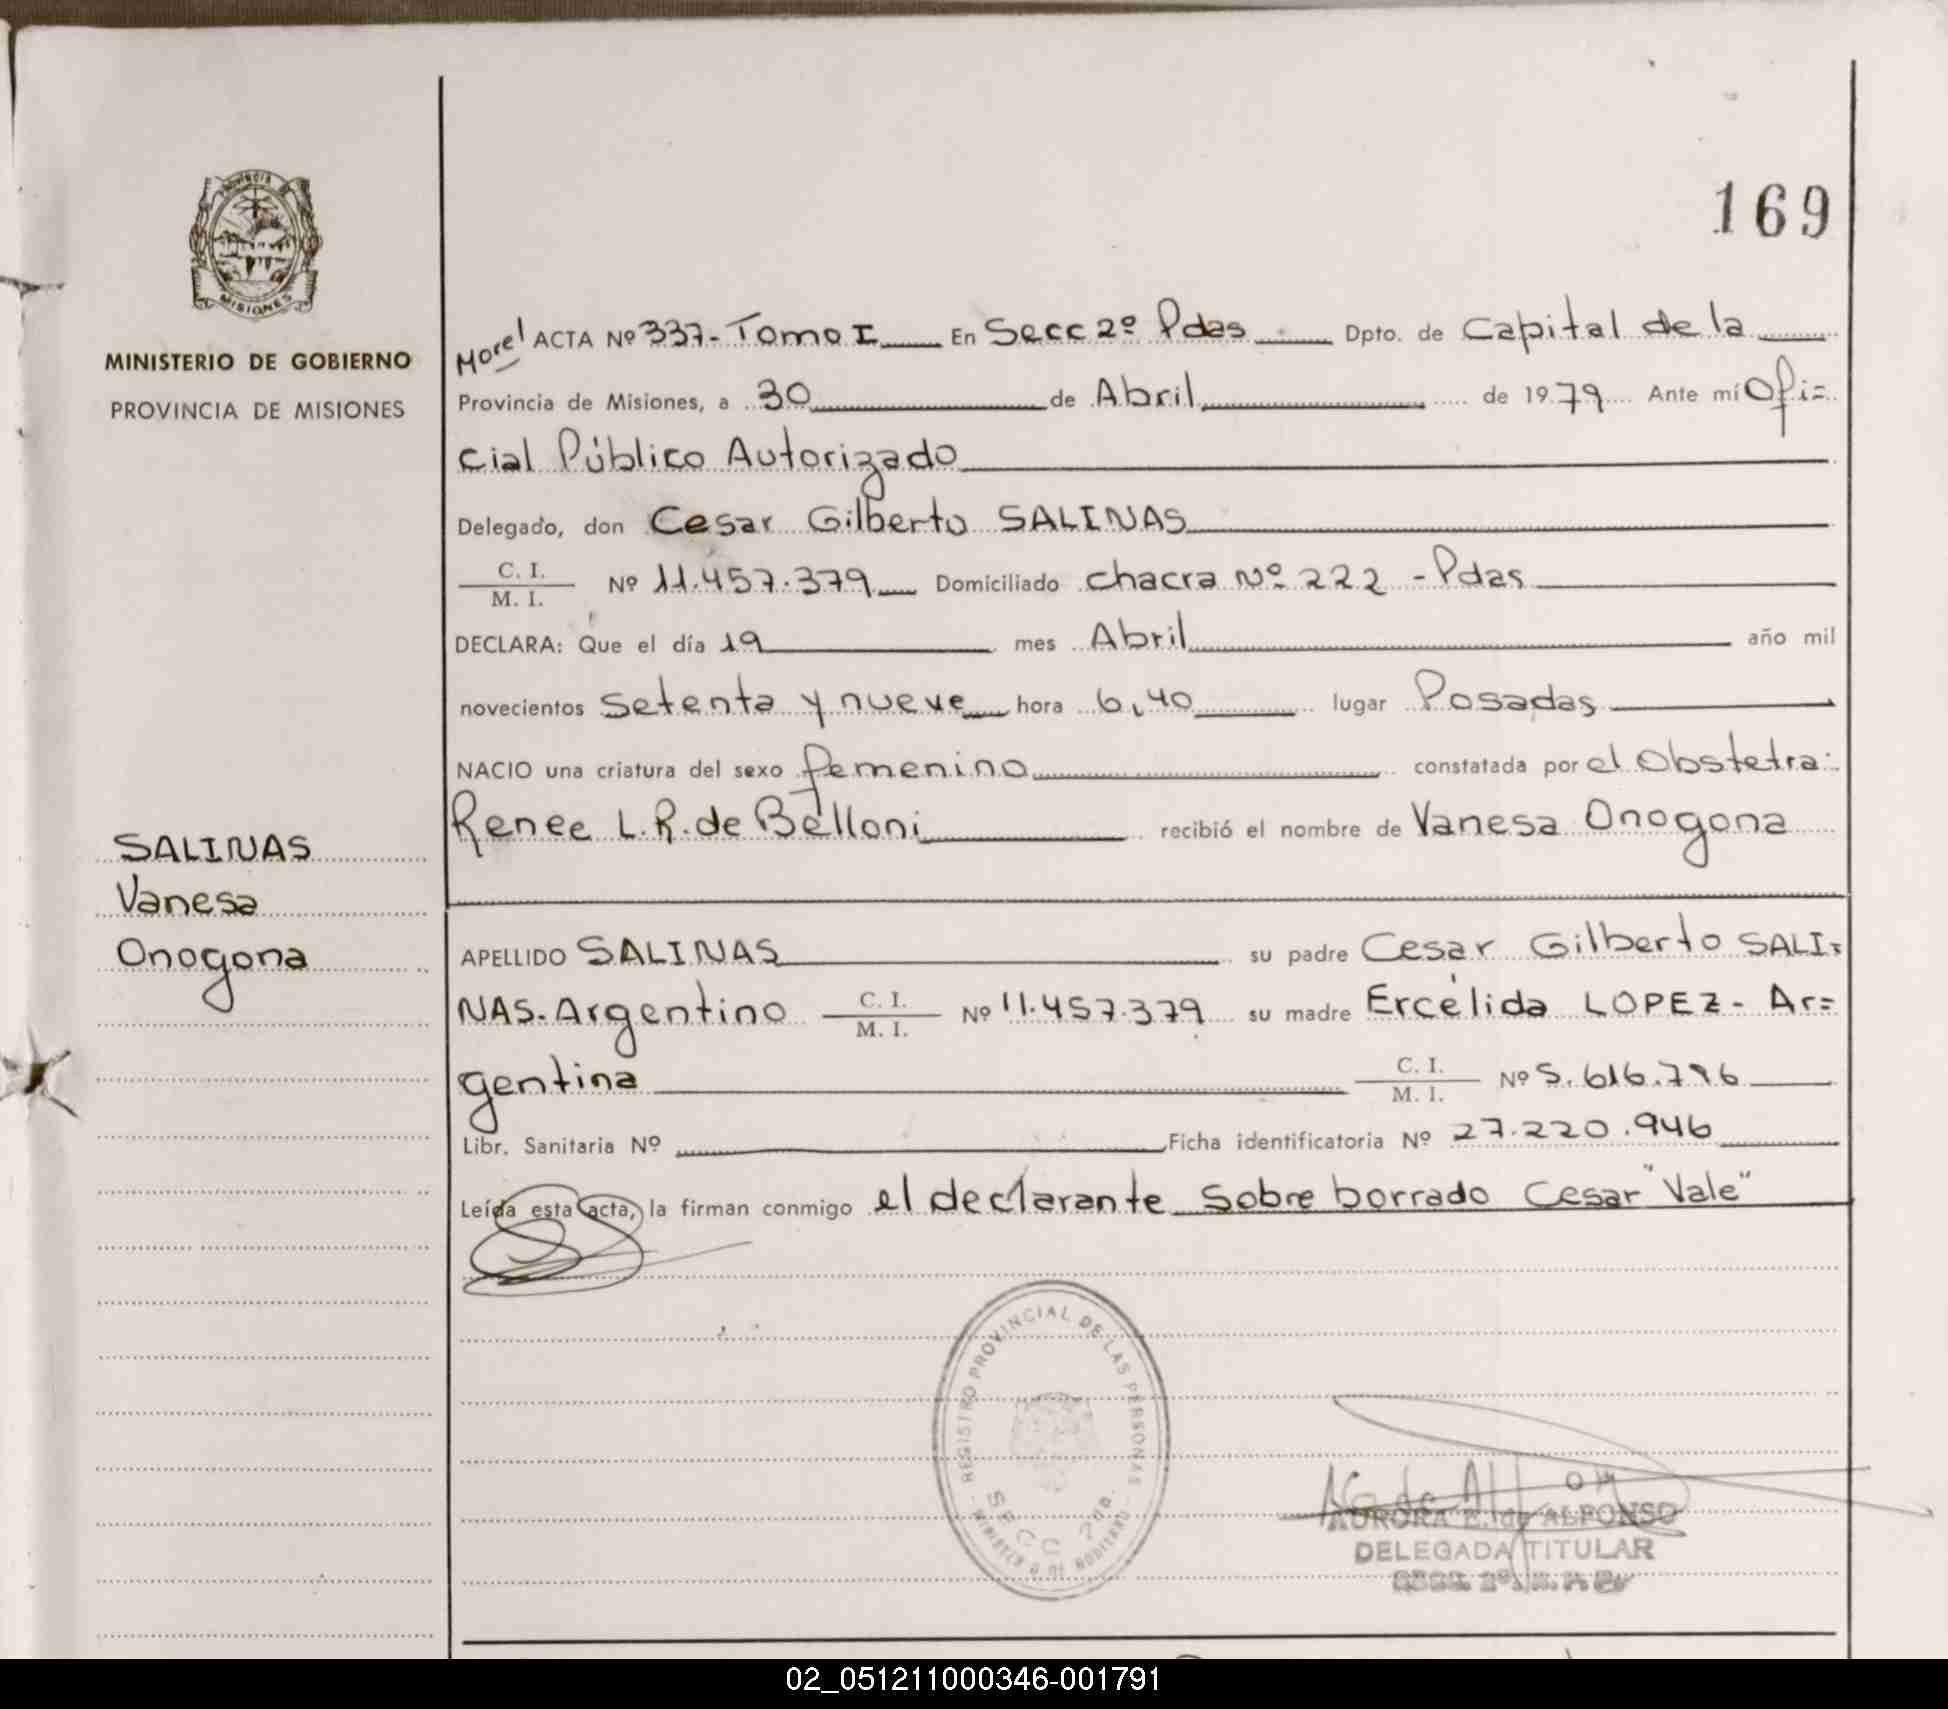 169
PROVINCIA DE
MISIONES
MINISTERIO DE GOBIERNO
PROVINCIA DE MISIONES
SALINAS
Vanesa
Onogona
Morel ACTA Nº 337- Tomo I En Secc 2º Pdas Dpto. de Capital de la
Provincia de Misiones, a 30 de Abril de 1979 Ante mí Ofi=
cial Público Autorizado
Delegado, don Cesar Gilberto SALINAS
C. I.
M. I. Nº 11.457.379 Domiciliado chacra Nº 222 - Pdas
DECLARA: Que el día 19 mes Abril año mil
novecientos setenta y nueve hora 6,40 lugar Posadas
NACIO una criatura del sexo femenino constatada por el Obstetra:
Renee L.R. de Belloni recibió el nombre de Vanesa Onogona
APELLIDO SALINAS su padre Cesar Gilberto SALI=
NAS. Argentino C. I. M. I. Nº 11.457.379 su madre Ercélida LOPEZ - Ar=
gentina C. I. M. I. Nº 5.616.796
Libr. Sanitaria Nº Ficha identificatoria Nº 27.220.946
Leída esta acta, la firman conmigo el declarante Sobre borrado Cesar "Vale"
REGISTRO PROVINCIAL DE LAS PERSONAS
SECC. 2da.
MINISTERIO DE GOBIERNO
AURORA E. de ALFONSO
DELEGADA TITULAR
02_051211000346-001791